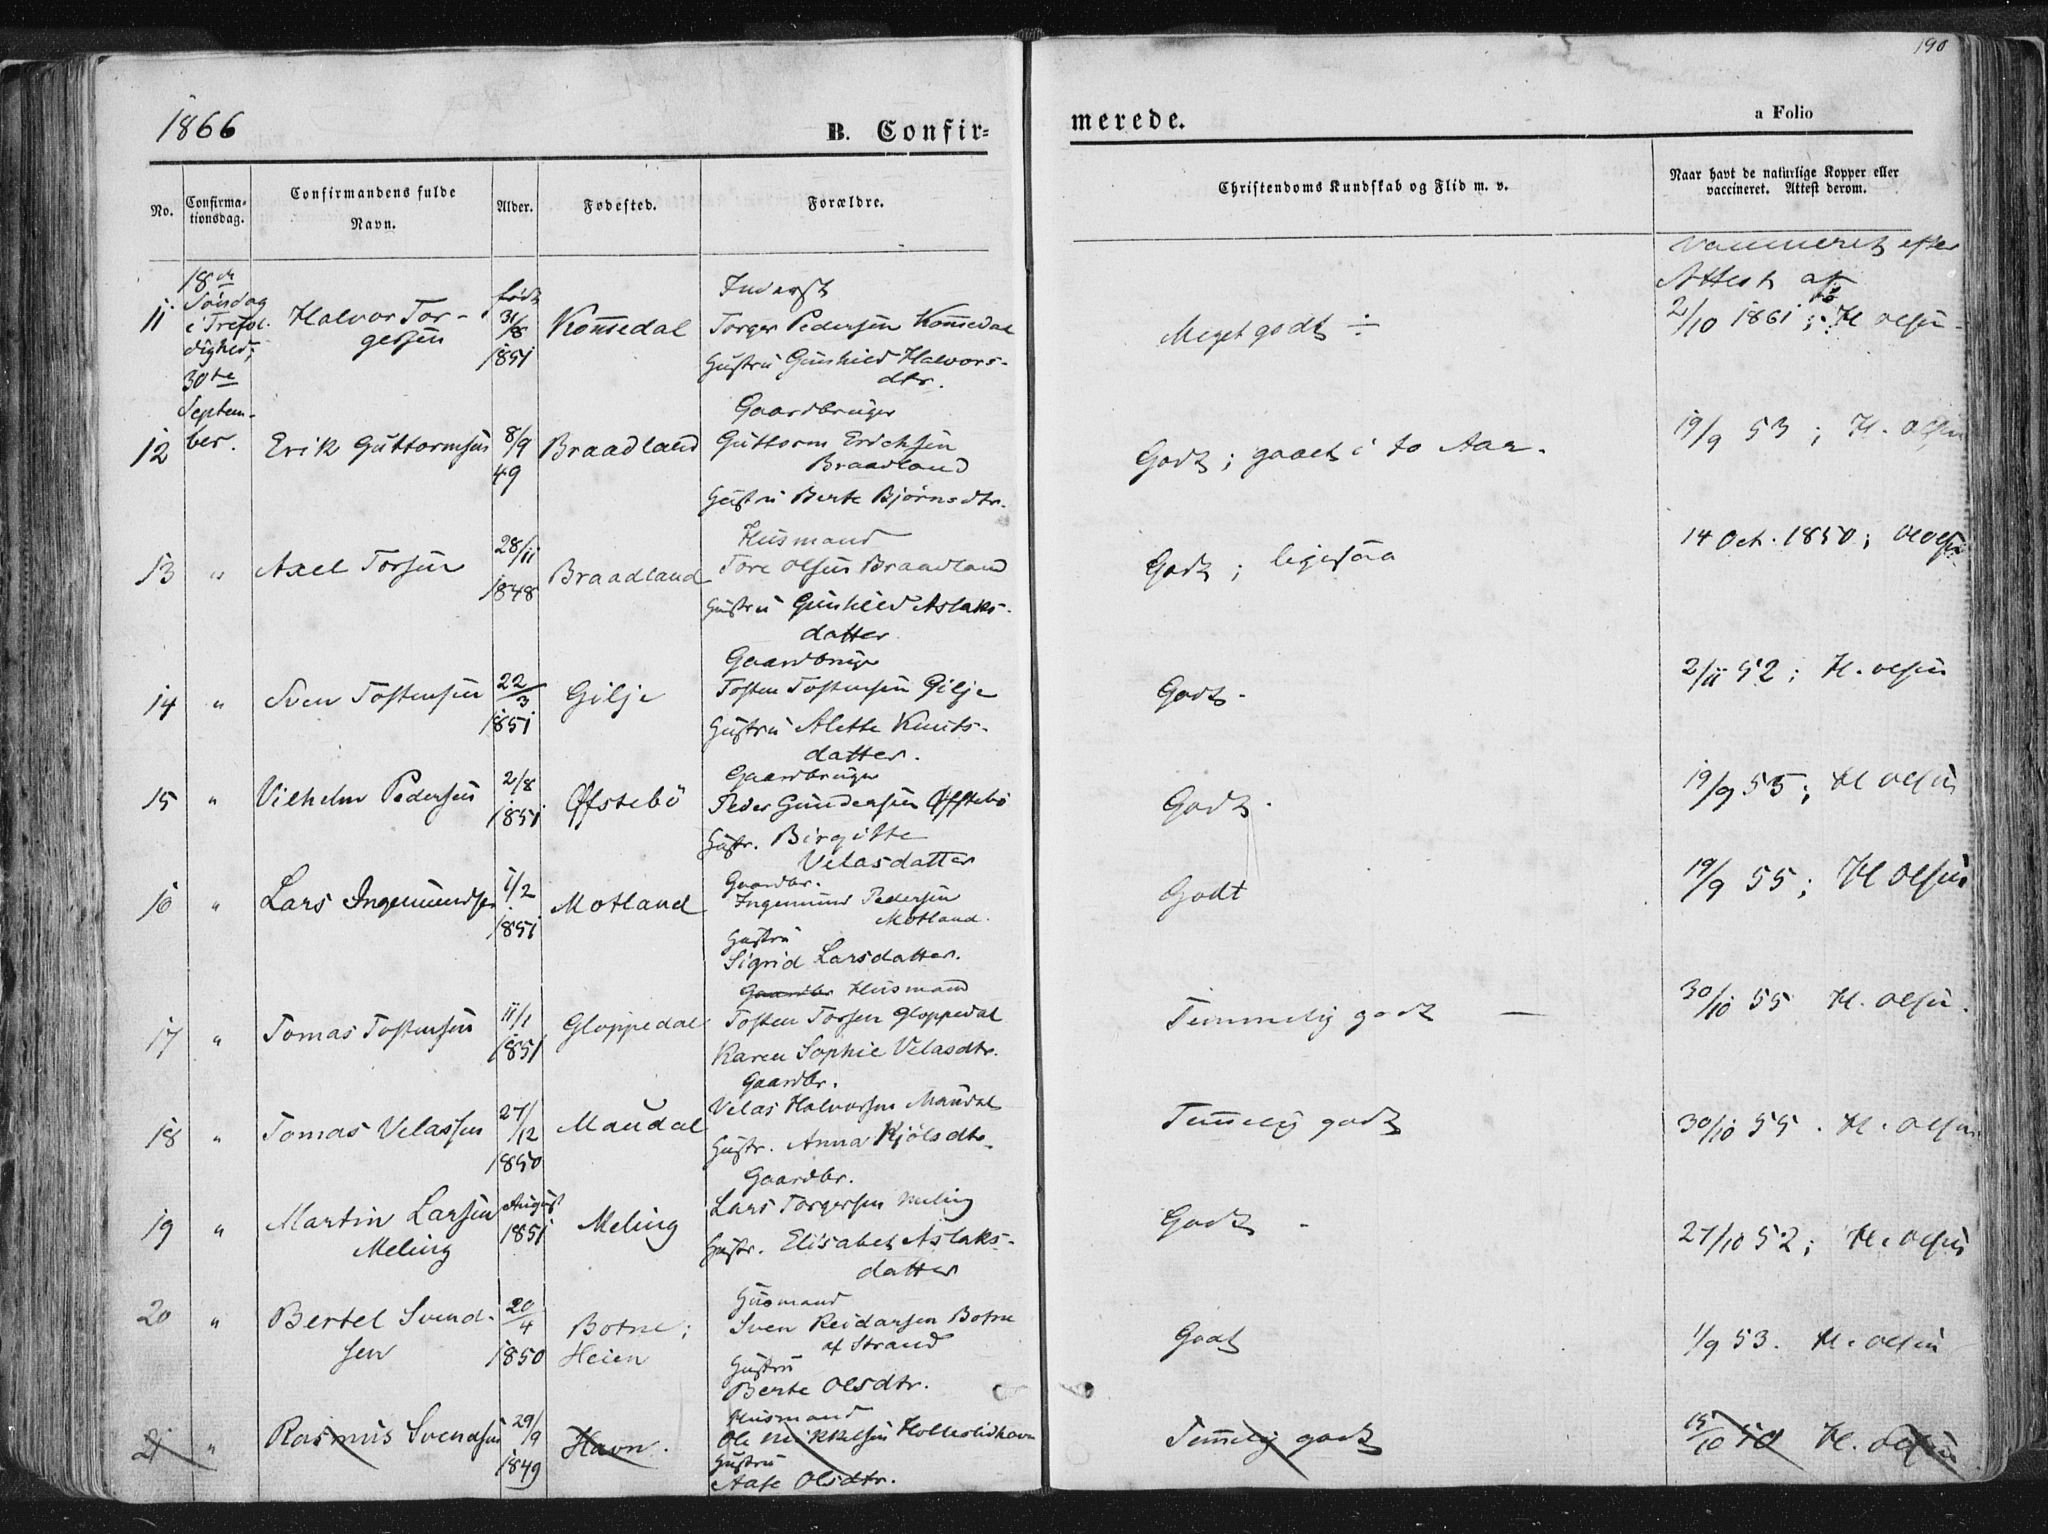 190
1866
B. Confir=
merede.
a Folio
No.
Confirma-
tionsdag.
Confirmandens fulde
Navn.
Alder.
Fødested.
Forældre.
Christendoms Kundskab og Flid m. v.
Naar havt de naturlige Kopper eller
vaccineret. Attest derom.
Vaccineret efter
Attest af
11
18de
Søndag
e Trefol-
dighed;
30te
Septem-
ber.
Halvor Tor-
gersen
født
31/8
1851
Kommedal
Inderst
Torger Pedersen Kommedal
Hustru Gunhild Halvors-
dtr.
Meget godt ÷
2/10 1861; H olsen
12
Erik Guttormsen
8/9
49
Braadland
Gaardbruger
Guttorm Erichsen
Braadland
Hustru Berte Bjørnsdtr.
Godt; gaaet i to Aar.
19/9 53; H. olsen
13 "
Axel Torsen
28/11
1848
Braadland
Husmand
Tore Olsen Braadland
Hustru Gunhild Aslaks-
datter
Godt; ligesaa
14 Oct. 1850; H olsen
14 "
Sven Tostensen
22/3
1851
Gilje
Gaardbruger
Tosten Tostensen Gilje
Hustru Alette Knuts-
datter.
Godt.
2/11 52; H. olsen
15 "
Vilhelm Pedersen
2/8
1851
Øfstebö
Gaardbruger
Peder Gundersen Øffstebö
Hustr. Birgitte
Velasdatter
Godt.
19/9 55; H olsen
16 "
Lars Ingemundsen
1/2
1851
Motland
Gaardbr.
Ingemund Pedersen
Motland.
Hustru
Sigrid Larsdatter.
Godt
19/9 55; H olsen
17 "
Tomas Tostensen
11/1
1851
Gloppedal
Gaardbr Husmand
Tosten Torsen Gloppedal
Karen Sophie Velasdtr.
Temmelig godt —
30/10 55 H. olsen.
18 "
Tomas Velassen
27/12
1850
Maudal
Gaardbr.
Velas Halvorsen Maudal
Hustr. Anna Kjølsdtr.
Temmelig godt
30/10 55. H. olsen
19 "
Martin Larsen
Meling
August
1851
Meling
Gaardbr.
Lars Torgersen Meling
Hustr. Elisabet Aslaks-
datter
Godt
27/10 52; H. olsen
20 "
Bertel Svend-
sen
20/4
1850
Botne;
Heien
Husmand
Sven Reidarsen Botne
af Strand
Hustru
Berte Olsdtr.
Godt
1/9 53. H. olsen
21 "
Rasmus Svendsen
29/9
1849
Havn.
Husmand
Ole Mikkelsen Holleslidhavn
Hustru
Aase Olsdtr.
Temmelig godt
15/10 50 H. olsen